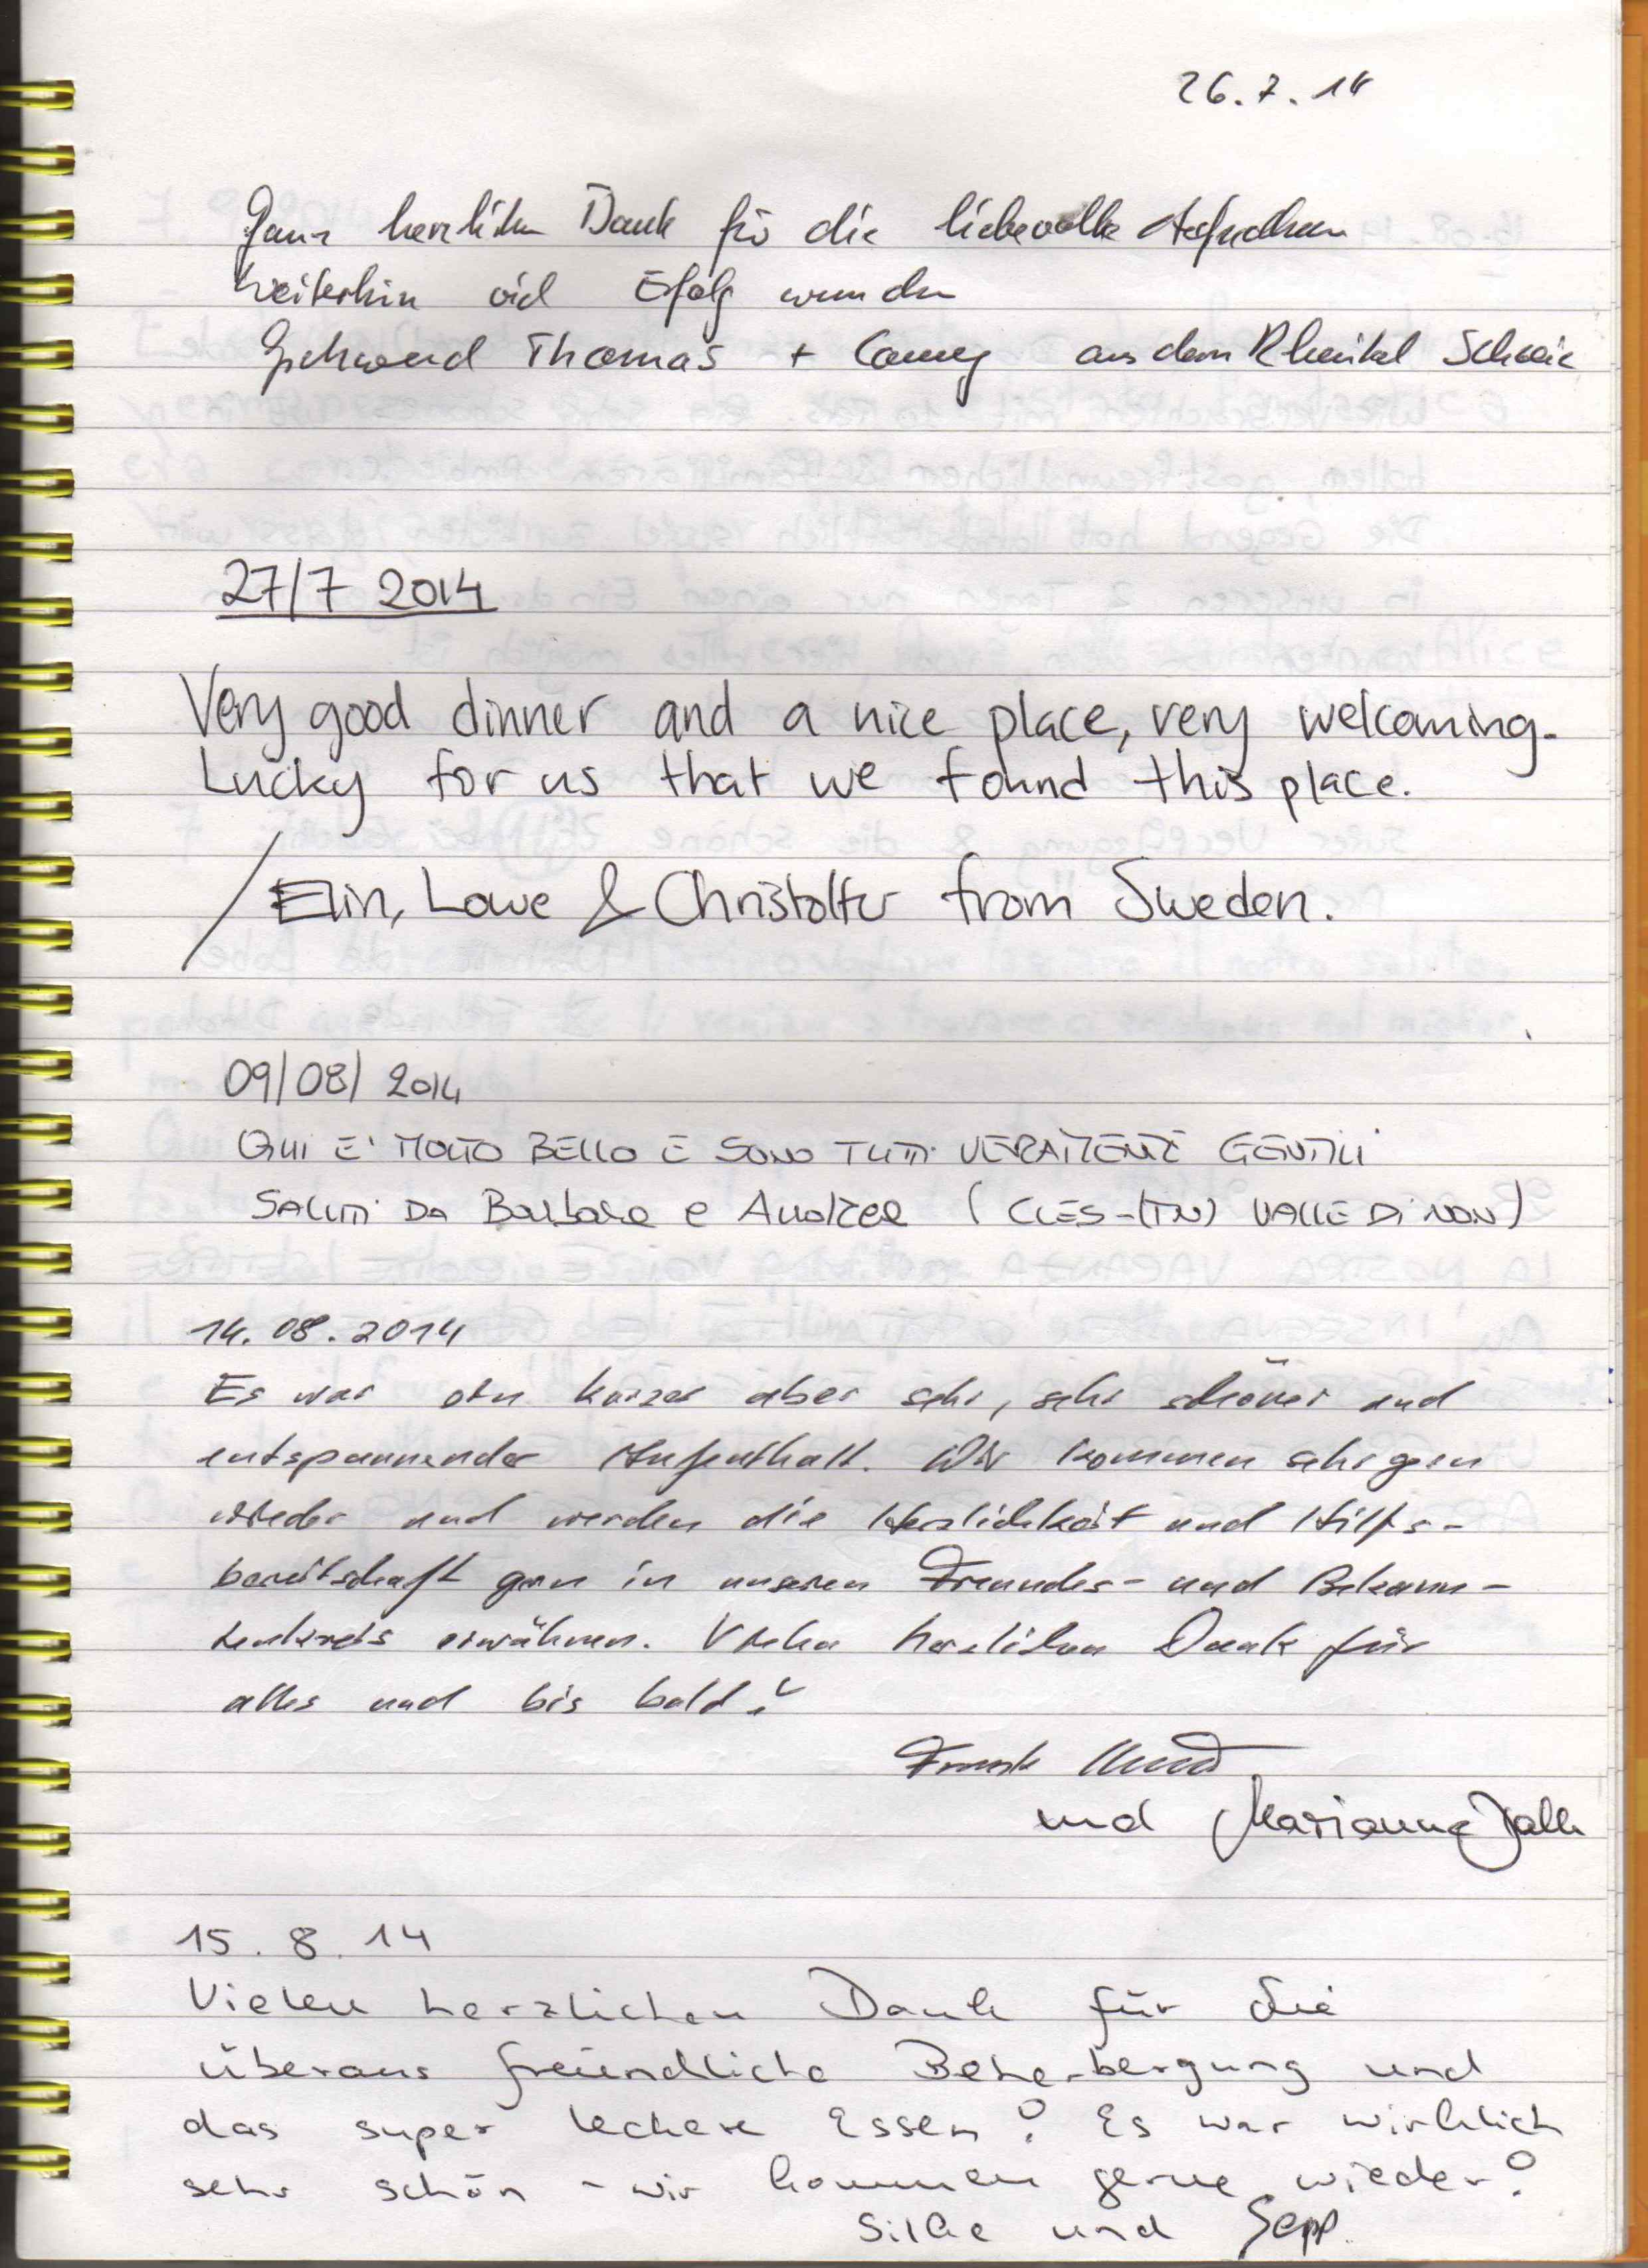 26.7.14
Ganz herzlichen Dank für die liebevolle
weiterhin viel Erfolg
Gschwend Thomas + aus dem Rheintal Schweiz
27/7 2014
Very good dinner and a nice place, very welcoming.
Lucky for us that we found this place.
/Elin, Lowe & Christoffer from Sweden.
09/08/2014
QUI E' MOLTO BELLO E SONO TUTTI VERAMENTE GENTILI
SALUTI DA Barbara e Andrea (CLES-(TN) VALLE DI NON)
14.08.2014
Es war ein kurzer aber sehr, sehr schöner und
entspannender Aufenthalt. Wir kommen sehr gern
wieder und werden die Herzlichkeit und Hilfs-
bereitschaft gern in unseren Freundes- und Bekann-
tenkreis erwähnen. Vielen herzlichen Dank für
alles und bis bald!
Frank
und Marianne
15.8.14
Vielen herzlichen Dank für die
überaus freundliche Beherbergung und
das super leckere Essen! Es war wirklich
sehr schön - wir kommen gerne wieder!
Silke und Sepp.